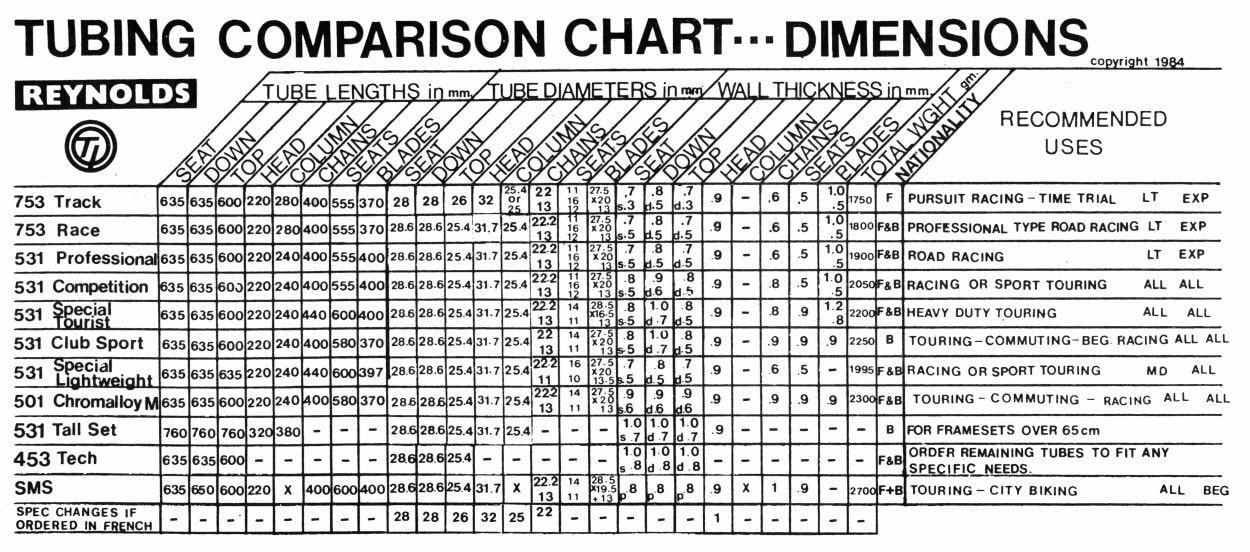 TUBING COMPARISON CHART... DIMENSIONS
copyright 1984
REYNOLDS
TI
TUBE LENGTHS in mm. TUBE DIAMETERS in mm WALL THICKNESS in mm.
SEAT DOWN TOP HEAD COLUMN CHAINS SEATS BLADES SEAT DOWN TOP HEAD COLUMN CHAINS SEATS BLADES SEAT DOWN TOP HEAD COLUMN CHAINS SEATS BLADES TOTAL WGHT gm. NATIONALITY
RECOMMENDED
USES
753 Track 635 635 600 220 280 400 555 370 28 28 26 32 25.4 or 25 22 13 11 16 12 27.5 x20 13 .7 s.3 .8 d.5 .7 d.3 .9 - .6 .5 1.0 .5 1750 F PURSUIT RACING - TIME TRIAL LT EXP
753 Race 635 635 600 220 280 400 555 370 28.6 28.6 25.4 31.7 25.4 22.2 13 11 16 12 27.5 x20 13 .7 s.5 .8 d.5 .7 d.5 .9 - .6 .5 1.0 .5 1800 F&B PROFESSIONAL TYPE ROAD RACING LT EXP
531 Professional 635 635 600 220 240 400 555 400 28.6 28.6 25.4 31.7 25.4 22.2 13 11 16 12 27.5 x20 13 .7 s.5 .8 d.5 .7 d.5 .9 - .6 .5 1.0 .5 1900 F&B ROAD RACING LT EXP
531 Competition 635 635 603 220 240 400 555 400 28.6 28.6 25.4 31.7 25.4 22.2 13 11 16 12 27.5 x20 13 .8 s.5 .9 d.6 .8 d.5 .9 - .8 .5 1.0 .5 2050 F&B RACING OR SPORT TOURING ALL ALL
531 Special Tourist 635 635 600 220 240 440 600 400 28.6 28.6 25.4 31.7 25.4 22.2 13 14 11 28.5 x16.5 13 .8 s.5 1.0 d.7 .8 d.5 .9 - .8 .9 1.2 .8 2200 F&B HEAVY DUTY TOURING ALL ALL
531 Club Sport 635 635 600 220 240 400 580 370 28.6 28.6 25.4 31.7 25.4 22 13 14 11 27.5 x20 13 .8 s.5 1.0 d.7 .8 d.5 .9 - .9 .9 .9 2250 B TOURING - COMMUTING - BEG. RACING ALL ALL
531 Special Lightweight 635 635 635 220 240 440 600 397 28.6 28.6 25.4 31.7 25.4 22.2 11 16 10 27.5 x20 13.5 .7 s.5 .8 d.5 .7 d.5 .9 - .6 .5 - 1995 F&B RACING OR SPORT TOURING MD ALL
501 Chromalloy M 635 635 600 220 240 400 580 370 28.6 28.6 25.4 31.7 25.4 22.2 13 14 11 27.5 x20 13 .9 s.6 .9 d.6 .9 d.6 .9 - .9 .9 .9 2300 F&B TOURING - COMMUTING - RACING ALL ALL
531 Tall Set 760 760 760 320 380 - - - 28.6 28.6 25.4 31.7 25.4 - - - 1.0 s.7 1.0 d.7 1.0 d.7 .9 - - - - - B FOR FRAMESETS OVER 65cm
453 Tech 635 635 600 - - - - - 28.6 28.6 25.4 - - - - - 1.0 s.8 1.0 d.8 1.0 d.8 - - - - - - F&B ORDER REMAINING TUBES TO FIT ANY
SPECIFIC NEEDS.
SMS 635 650 600 220 X 400 600 400 28.6 28.6 25.4 31.7 X 22.2 13 14 11 28.5 x19.5 +13 .8 p .8 p .8 p .9 X 1 .9 - 2700 F+B TOURING - CITY BIKING ALL BEG
SPEC CHANGES IF
ORDERED IN FRENCH - - - - - - - - 28 28 26 32 25 22 - - - - - 1 - - - - -